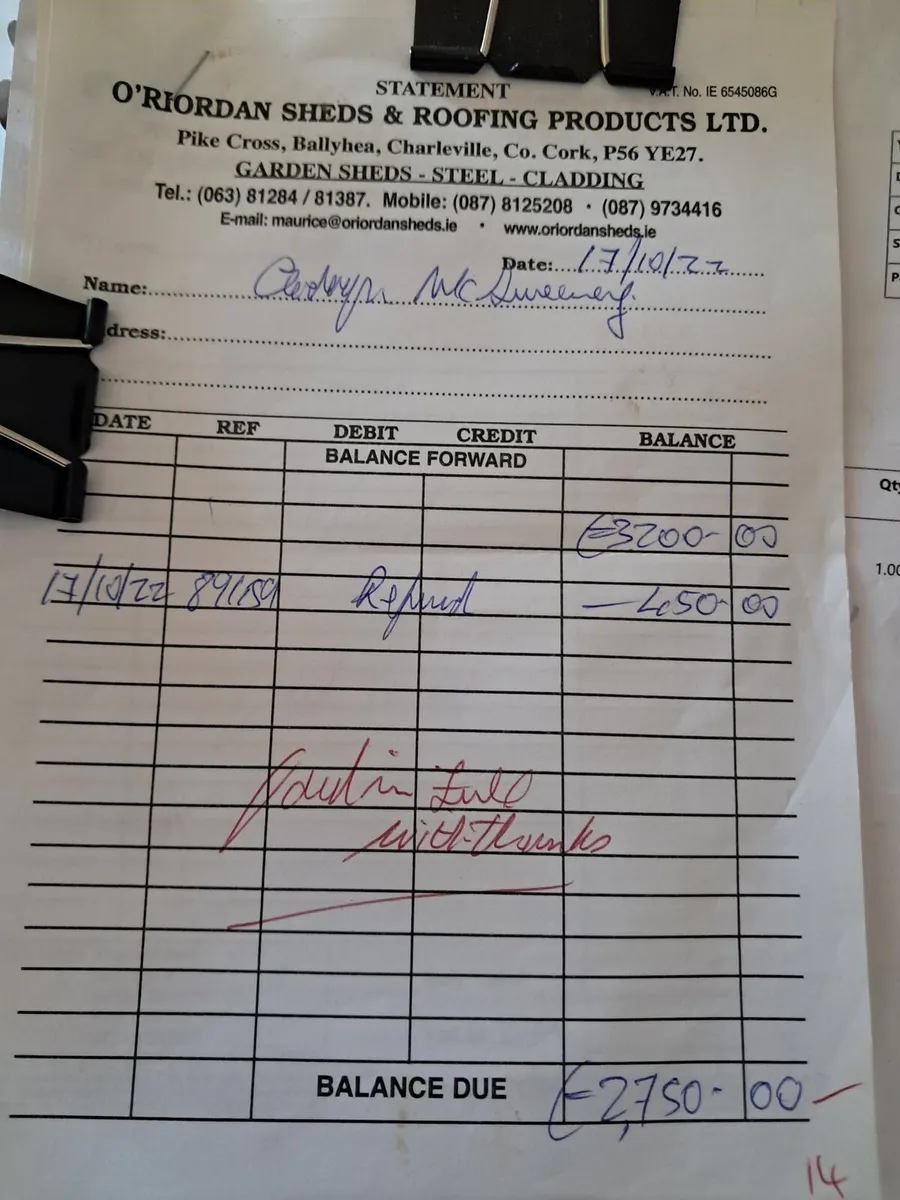 STATEMENT
V.A.T. No. IE 6545086G
O'RIORDAN SHEDS & ROOFING PRODUCTS LTD.
Pike Cross, Ballyhea, Charleville, Co. Cork, P56 YE27.
GARDEN SHEDS - STEEL - CLADDING
Tel.: (063) 81284 / 81387. Mobile: (087) 8125208 • (087) 9734416
E-mail: maurice@oriordansheds.ie • www.oriordansheds.ie
Date: 17/10/22
Name: Mc Sweeney.
dress:
DATE REF DEBIT CREDIT BALANCE
BALANCE FORWARD
€3200-00
17/10/22 89159 Refund —450-00
Paid in Full
with thanks
BALANCE DUE €2,750-00
14
Qty
1.00